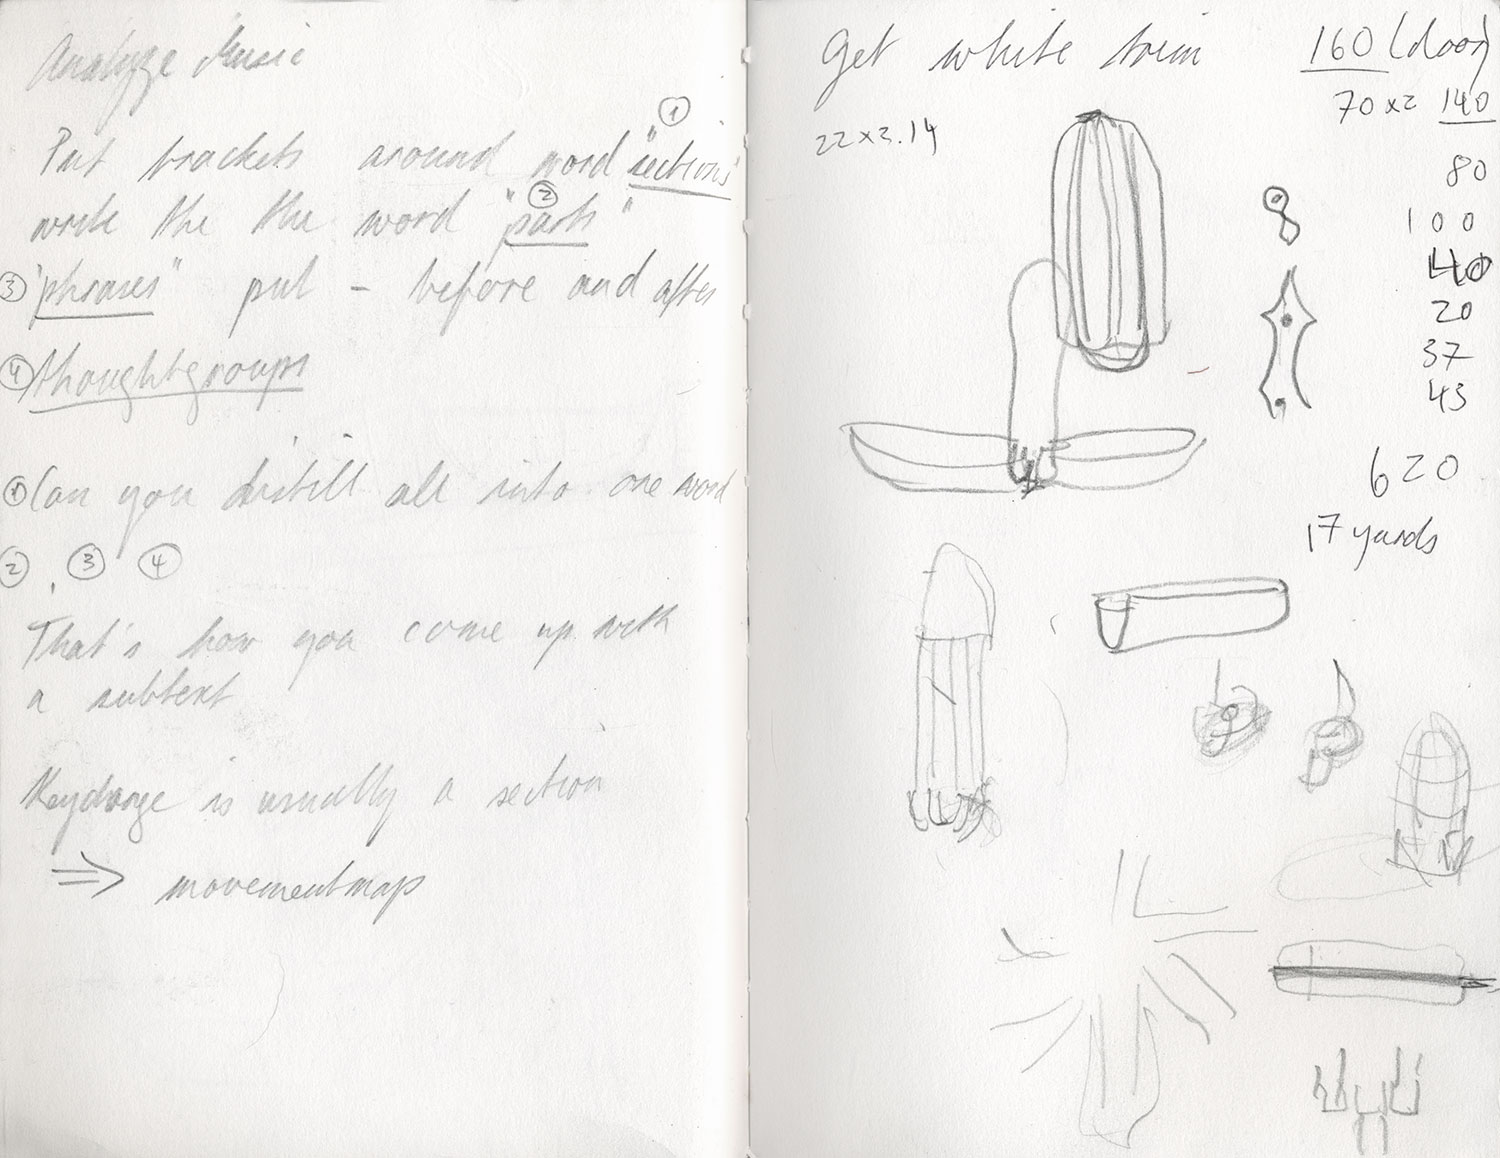 Analyze Music
①
Put brackets around word "sections"
②
write the the word "parts"
③ "phrases" put - before and after
④ thoughtgroups
① Can you distill all into one word
② , ③ ④
That's how you come up with
a subtext
Keychange is usually a section
⇒ movementmap
Get white trim 160 (door)
70 x 2 140
22 x 3.14
80
100
40
20
37
43
620
17 yards